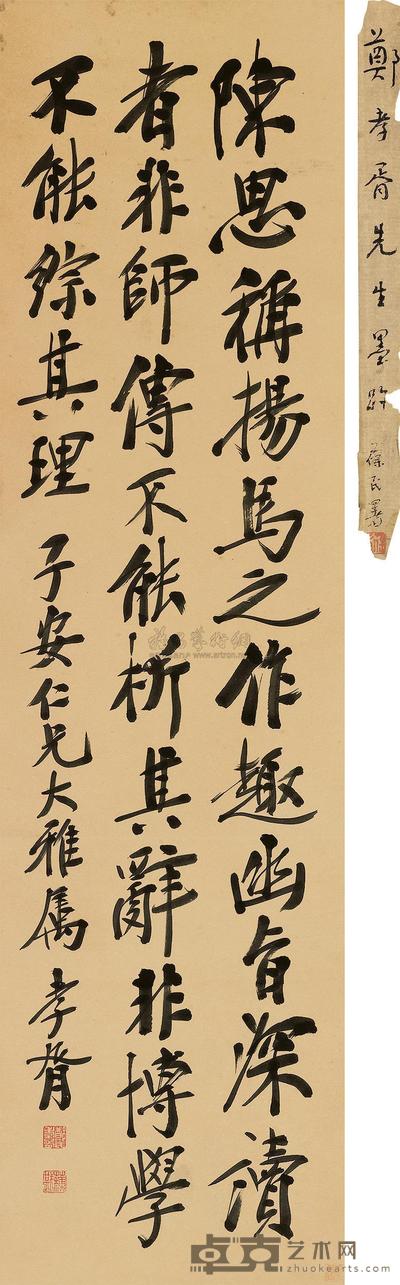 陳思稱揚馬之作趣幽旨深讀
者非師傳不能析其辭非博學
不能綜其理
子安仁兄大雅属 孝胥
鄭孝胥先生墨跡
卓克艺术网
www.zhuokearts.com